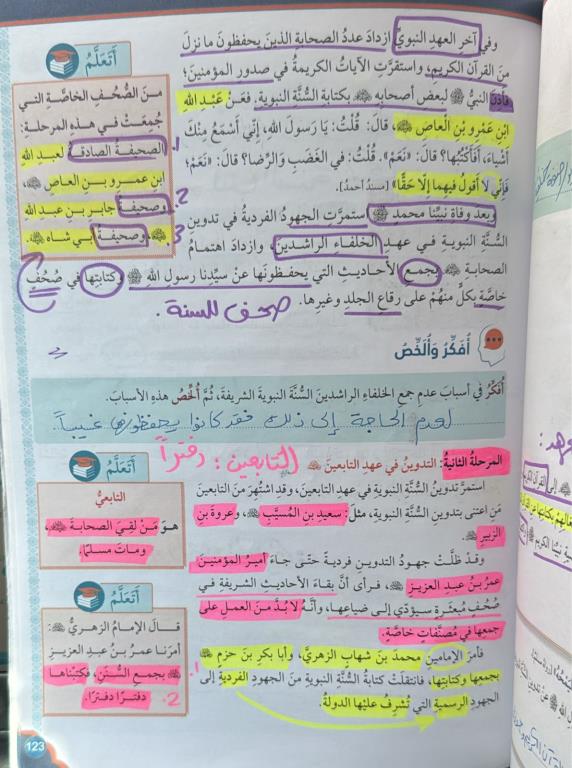 وفي آخر العهد النبويّ ازدادَ عددُ الصحابةِ الذينَ يحفظونَ ما نزلَ
منَ القرآنِ الكريمِ، واستقرَّتِ الآياتُ الكريمةُ في صدورِ المؤمنينَ؛
فأَذِنَ النبيُّ ﷺ لبعضِ أصحابِهِ بكتابةِ السُّنَّةِ النبويةِ. فعَنْ عَبْدِ اللهِ
ابْنِ عَمْرِو بْنِ الْعَاصِ، قالَ: قُلْتُ: يَا رَسُولَ اللهِ، إِنِّي أَسْمَعُ مِنْكَ
أَشْيَاءَ، أَفَأَكْتُبُهَا؟ قالَ: «نَعَمْ». قُلْتُ: في الْغَضَبِ وَالرِّضا؟ قالَ: «نَعَمْ؛
فَإِنِّي لا أَقولُ فيهِما إِلَّا حَقًّا» [مسند أحمد].
وبعدَ وفاةِ نبيِّنا محمدٍ ﷺ استمرَّتِ الجهودُ الفرديةُ في تدوينِ
السُّنَّةِ النبويةِ في عهدِ الخلفاءِ الراشدينَ، وازدادَ اهتمامُ
الصحابةِ بجمعِ الأحاديثِ التي يحفظونَها عنْ سيِّدِنا رسولِ اللهِ ﷺ وكتابتِها في صُحُفٍ
خاصَّةٍ بكلٍّ منهُمْ على رِقاعِ الجلدِ وغيرِها.
صحف للسنة
أَتَعَلَّمُ
منَ الصُّحُفِ الخاصَّةِ التي
جُمِعَتْ في هذهِ المرحلةِ:
1. الصحيفةُ الصادقةُ لعبدِ اللهِ
ابنِ عمرِو بنِ العاصِ،
2. وصحيفةُ جابرِ بنِ عبدِ اللهِ
3. وصحيفةُ أبي شاه.
أُفَكِّرُ وَأُلَخِّصُ
أُفَكِّرُ في أسبابِ عدمِ جمعِ الخلفاءِ الراشدينَ السُّنَّةَ النبويةَ الشريفةَ، ثمَّ أُلَخِّصُ هذهِ الأسبابَ.
لعدم الحاجة إلى ذلك فقد كانوا يحفظونها غيباً.
المرحلةُ الثانيةُ: التدوينُ في عهدِ التابعينَ
(التابعين: دفتراً
استمرَّ تدوينُ السُّنَّةِ النبويةِ في عهدِ التابعينَ، وقدِ اشتُهِرَ منَ التابعينَ
مَنِ اعتنى بتدوينِ السُّنَّةِ النبويةِ، مثلُ: سعيدِ بنِ المُسَيَّبِ، وعروةَ بنِ
الزبيرِ
وقدْ ظلَّتْ جهودُ التدوينِ فرديةً حتّى جاءَ أميرُ المؤمنينَ
عمرُ بنُ عبدِ العزيزِ، فرأى أنَّ بقاءَ الأحاديثِ الشريفةِ في
صُحُفٍ مُبعثَرةٍ سيؤدّي إلى ضياعِها، وأنَّهُ لا بُدَّ منَ العملِ على
جمعِها في مصنَّفاتٍ خاصَّةٍ.
فأمرَ الإمامينِ محمدَ بنَ شهابٍ الزهريَّ، وأبا بكرِ بنَ حزمٍ
بجمعِها وكتابتِها، فانتقلَتْ كتابةُ السُّنَّةِ النبويةِ منَ الجهودِ الفرديةِ إلى
الجهودِ الرسميةِ التي تُشرِفُ عليها الدولةُ.
أَتَعَلَّمُ
التابعيُّ
هوَ مَنْ لقِيَ الصحابةَ،
وماتَ مسلمًا.
أَتَعَلَّمُ
قالَ الإمامُ الزهريُّ:
أمرَنا عمرُ بنُ عبدِ العزيزِ
1. بجمعِ السُّنَنِ، فكتبْناها
2. دفترًا دفترًا.
123